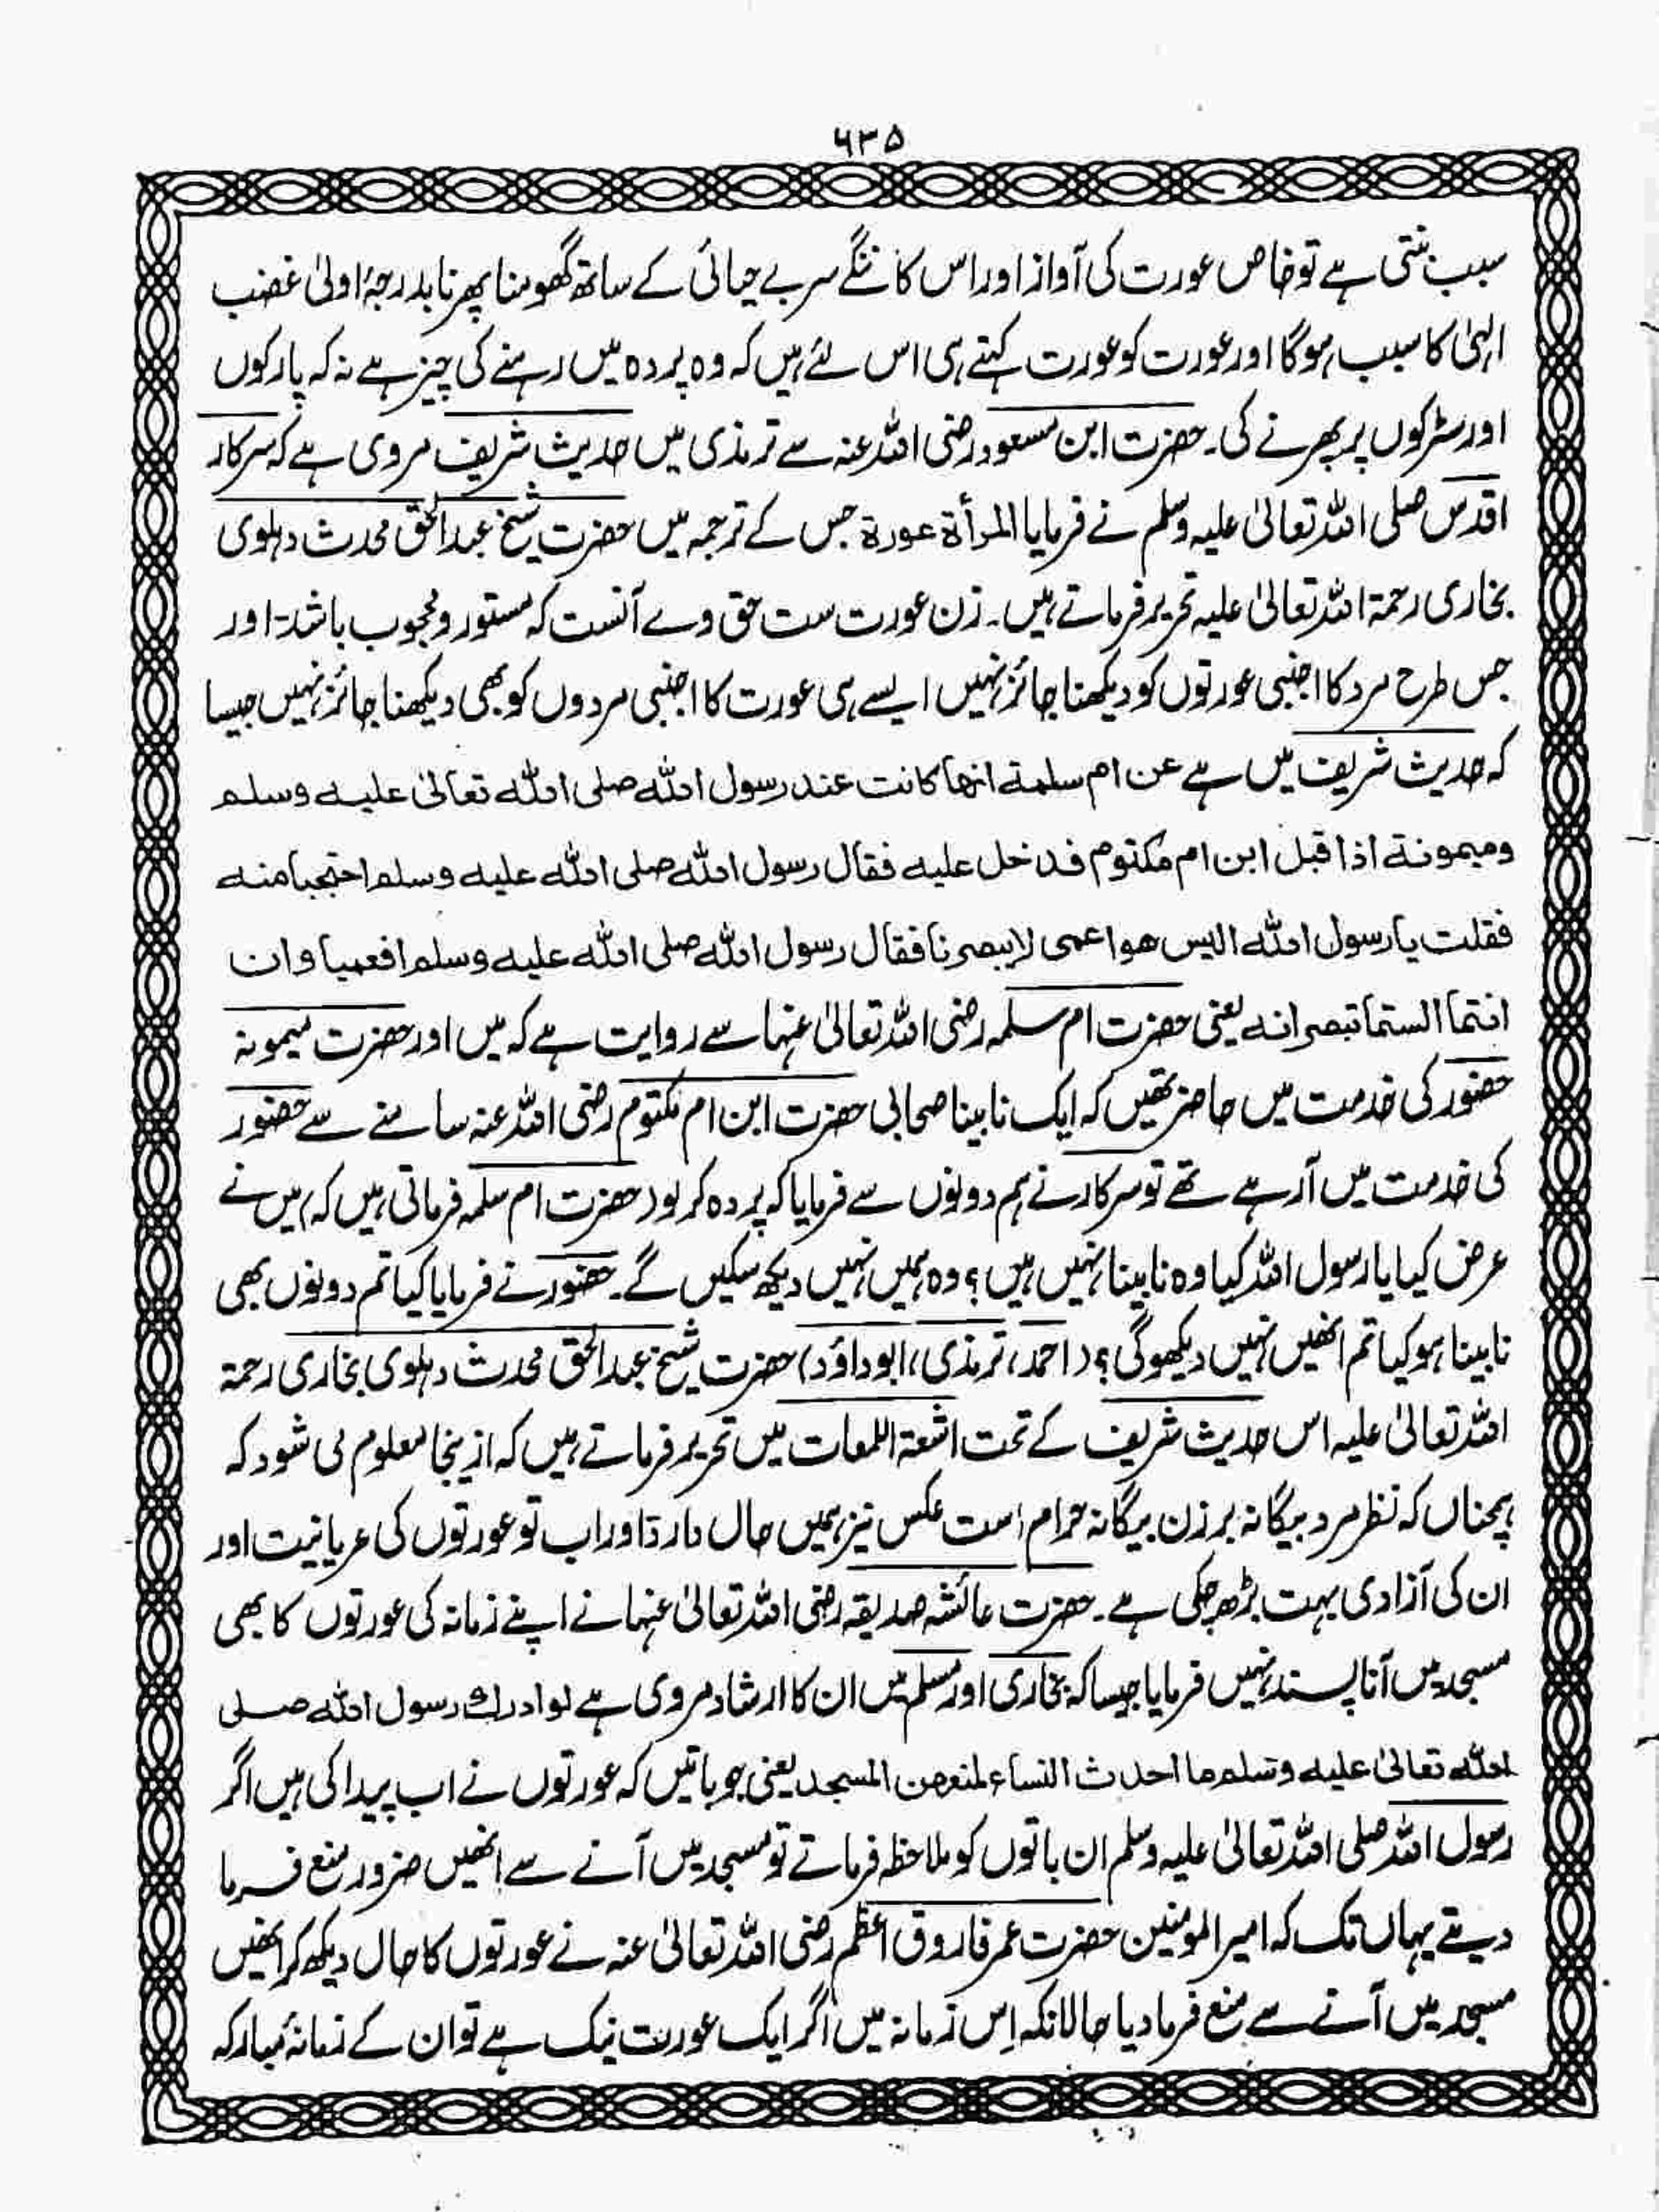 ۶۳۵
سبب بنتی ہے تو خاص عورت کی آواز اور اس کا ننگے سر بے حیائی کے ساتھ گھومنا پھرنا بدرجۂ اولیٰ غضب
الہٰی کا سبب ہوگا اور عورت کو عورت کہتے ہی اس لئے ہیں کہ وہ پردہ میں رہنے کی چیز ہے نہ کہ پارکوں
اور سڑکوں پر پھرنے کی۔ حضرت ابن مسعود رضی اللہ عنہ سے ترمذی میں حدیث شریف مروی ہے کہ سرکار
اقدس صلی اللہ تعالیٰ علیہ وسلم نے فرمایا المرأة عورة جس کے ترجمہ میں حضرت شیخ عبدالحق محدث دہلوی
بخاری رحمۃ اللہ تعالیٰ علیہ تحریر فرماتے ہیں۔ زن عورت ست حق وے آنست کہ مستور و محجوب باشد۔ اور
جس طرح مرد کا اجنبی عورتوں کو دیکھنا جائز نہیں ایسے ہی عورت کا اجنبی مردوں کو بھی دیکھنا جائز نہیں جیسا
کہ حدیث شریف میں ہے عن ام سلمة انها كانت عند رسول الله صلى الله تعالىٰ عليه وسلم
وميمونة اذا قبل ابن ام مكتوم فدخل عليه فقال رسول الله صلى الله عليه وسلم احتجبا منه
فقلت يا رسول الله اليس هو اعمى لا يبصرنا فقال رسول الله صلى الله عليه وسلم افعميا وان
انتما الستما تبصرانه یعنی حضرت ام سلمہ رضی اللہ تعالیٰ عنہا سے روایت ہے کہ میں اور حضرت میمونہ
حضور کی خدمت میں حاضر تھیں کہ ایک نابینا صحابی حضرت ابن ام مکتوم رضی اللہ عنہ سامنے سے حضور
کی خدمت میں آرہے تھے تو سرکار نے ہم دونوں سے فرمایا کہ پردہ کرلو (حضرت ام سلمہ فرماتی ہیں کہ) میں نے
عرض کیا یا رسول اللہ کیا وہ نابینا نہیں ہیں؟ وہ ہمیں نہیں دیکھ سکیں گے۔ حضور نے فرمایا کیا تم دونوں بھی
نابینا ہو کیا تم انھیں نہیں دیکھوگی؟ (احمد، ترمذی، ابوداؤد) حضرت شیخ عبدالحق محدث دہلوی بخاری رحمۃ
اللہ تعالیٰ علیہ اس حدیث شریف کے تحت اشعۃ اللمعات میں تحریر فرماتے ہیں کہ ازینجا معلوم می شود کہ
ہمچناں کہ نظر مرد بیگانہ بر زن بیگانہ حرام است عکس نیز ہمیں حال دارد اور اب تو عورتوں کی عریانیت اور
ان کی آزادی بہت بڑھ چکی ہے۔ حضرت عائشہ صدیقہ رضی اللہ تعالیٰ عنہا نے اپنے زمانہ کی عورتوں کا بھی
مسجد میں آنا پسند نہیں فرمایا جیسا کہ بخاری اور مسلم میں ان کا ارشاد مروی ہے لو ادرك رسول الله صلى
الله تعالىٰ عليه وسلم ما احدث النساء لمنعهن المسجد یعنی جو باتیں کہ عورتوں نے اب پیدا کی ہیں اگر
رسول اللہ صلی اللہ تعالیٰ علیہ وسلم ان باتوں کو ملاحظہ فرماتے تو مسجد میں آنے سے انھیں ضرور منع فرما
دیتے یہاں تک کہ امیر المومنین حضرت عمر فاروق اعظم رضی اللہ تعالیٰ عنہ نے عورتوں کا حال دیکھ کر انھیں
مسجد میں آنے سے منع فرمادیا حالانکہ اِس زمانہ میں اگر ایک عورت نیک ہے تو ان کے زمانۂ مبارکہ